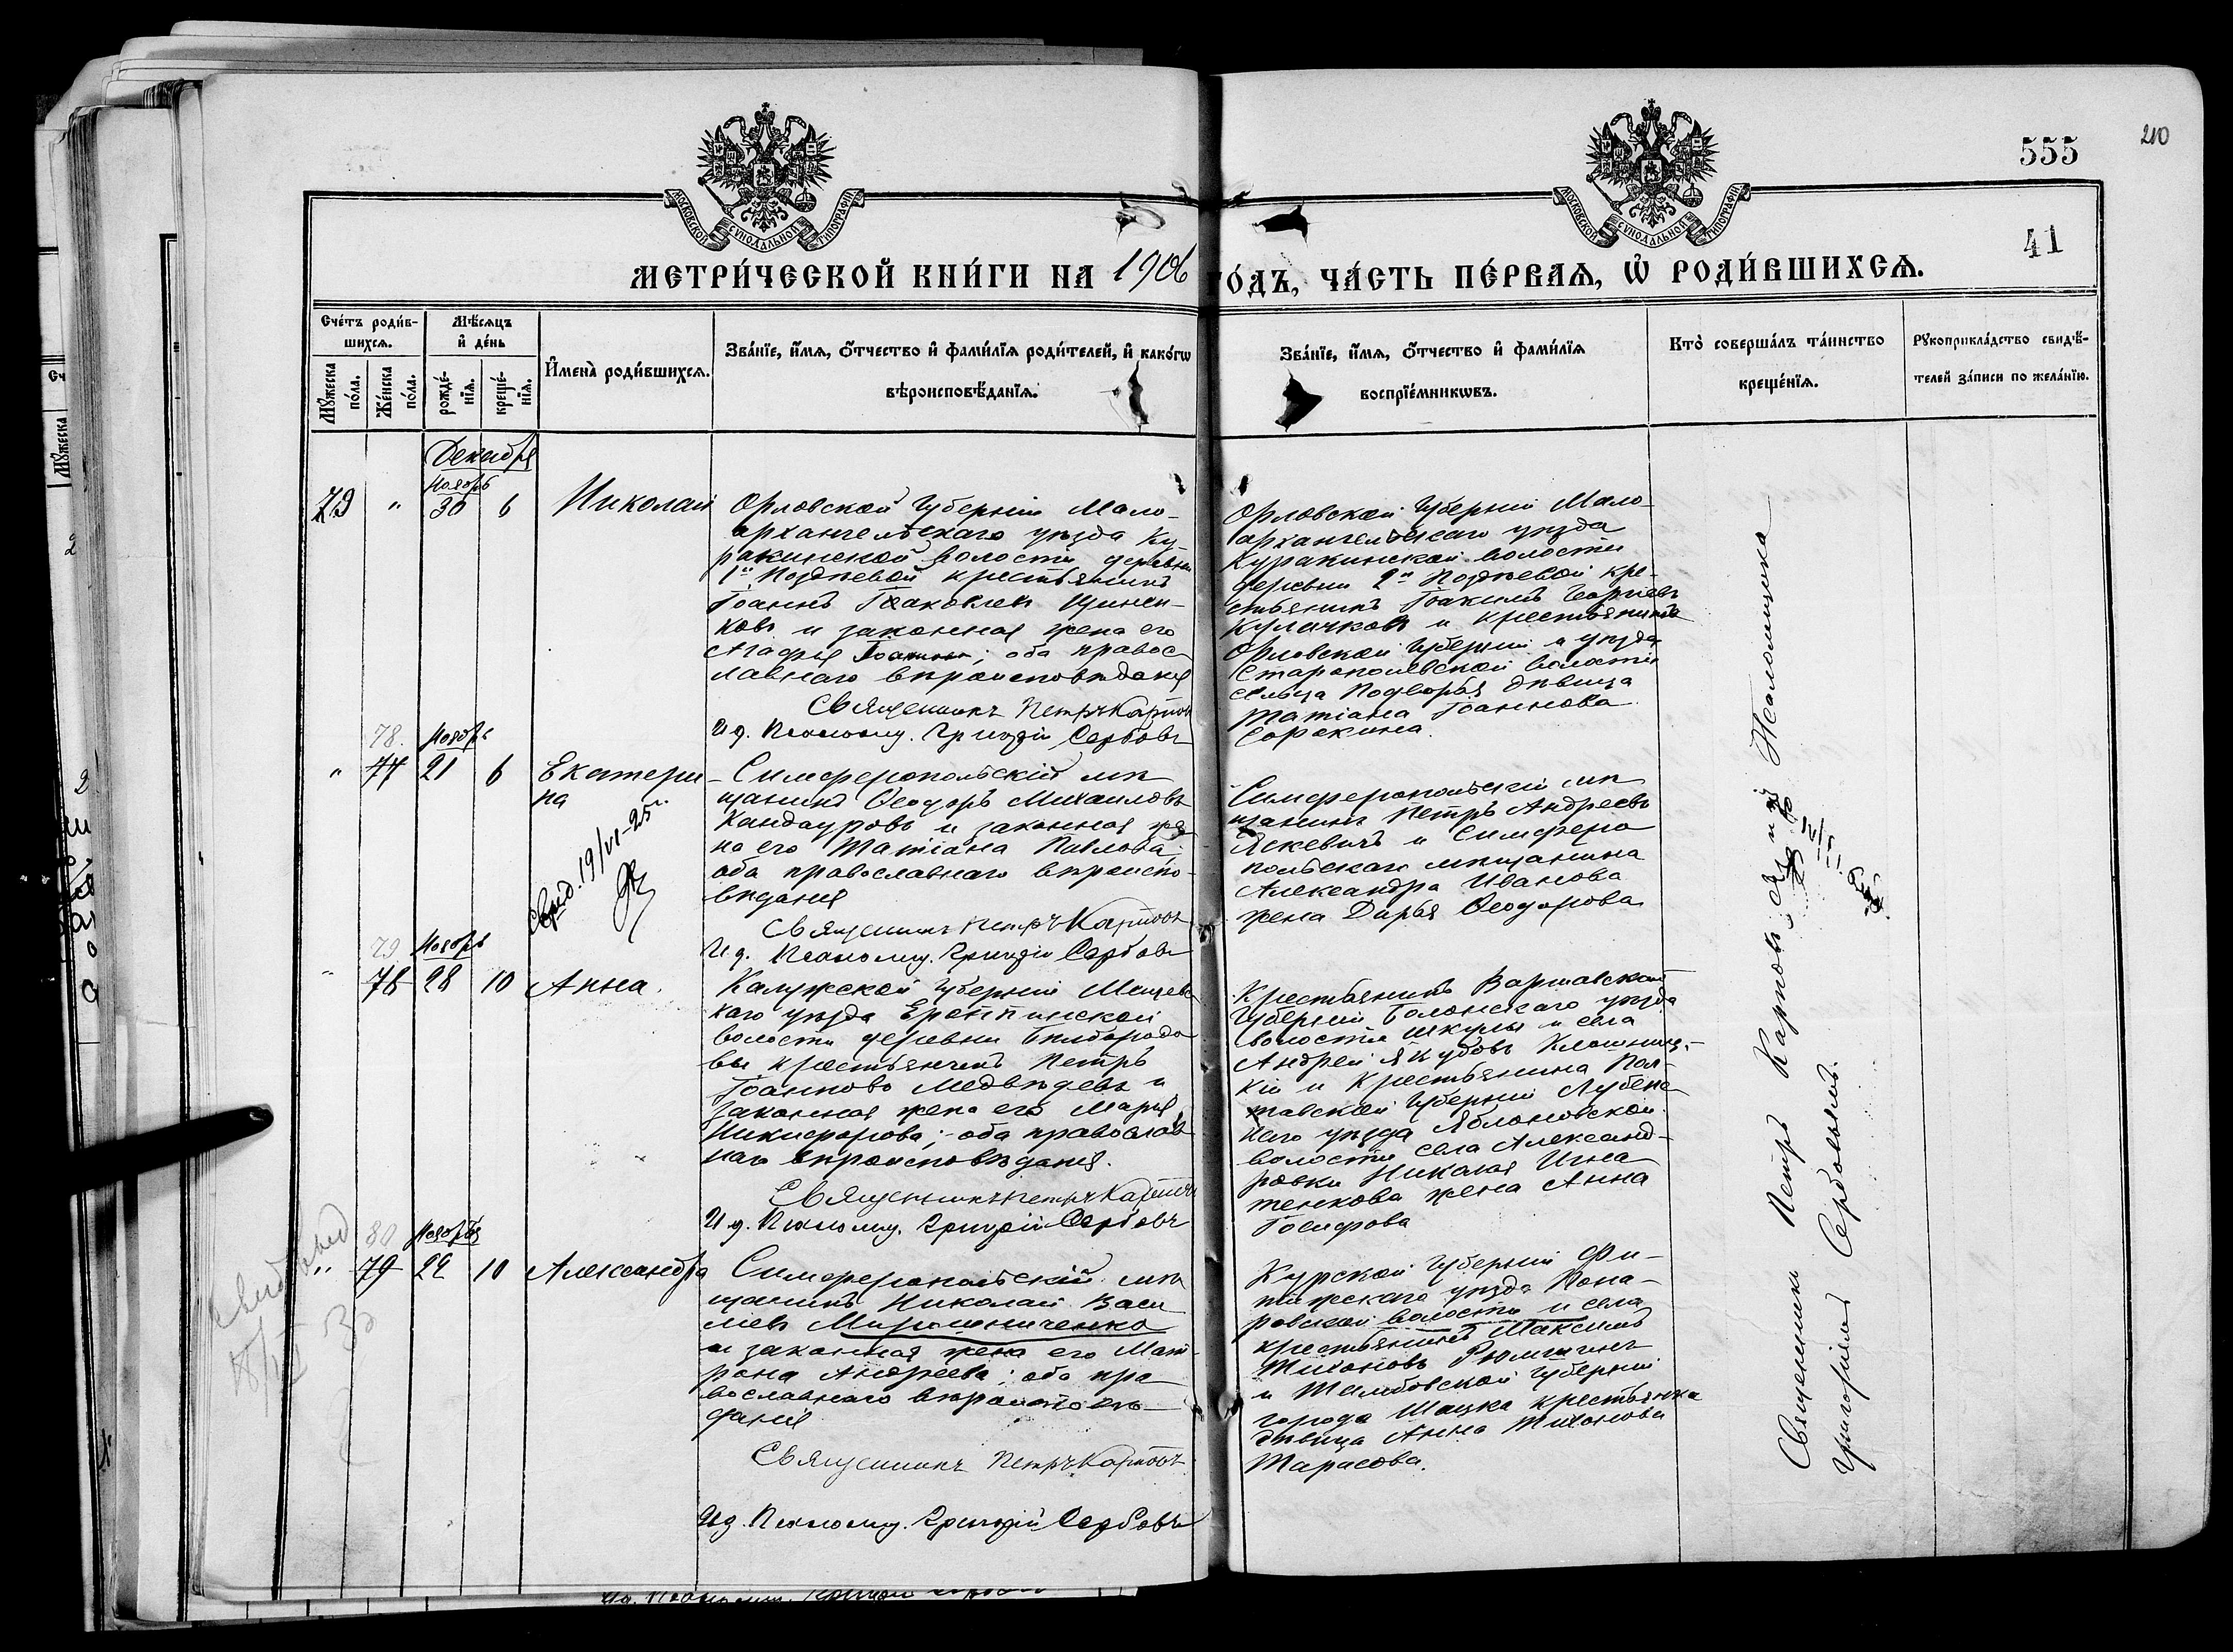 555
210
41
МОСКОВСКОЙ СѴНОДАЛЬНОЙ ТИПОГРАФІИ
МОСКОВСКОЙ СѴНОДАЛЬНОЙ ТИПОГРАФІИ
МЕТРИ́ЧЕСКОЙ КНИ́ГИ НА 1906 ГО́ДЪ, ЧА́СТЬ ПЕ́РВАѦ, Ѡ҆ РОДИ́ВШИХСѦ.
Сче́тъ роди́в-
шихсѧ.
Мꙋ́жеска по́ла.
Же́нска по́ла.
Мѣ́сѧцъ
и҆ де́нь
рожде́-
нїѧ.
креще́-
нїѧ.
И҆мена̀ роди́вшихсѧ.
Зва́нїе, и҆́мѧ, ѻ҆́тчество и҆ фами́лїѧ роди́телей, и҆ како́гѡ
вѣроисповѣ́данїѧ.
Зва́нїе, и҆́мѧ, ѻ҆́тчество и҆ фами́лїѧ
воспрїе́мникѡвъ.
Кто̀ соверша́лъ та́инство
креще́нїѧ.
Рꙋкоприкла́дство свидѣ́-
телей за́писи по жела́нїю.
Декабря
Ноябр
79 " 30 6 Николай
Орловской Губерніи Мало-
архангельскаго уѣзда Ку-
ракинской волости деревни
1й Поздѣевой крестьянинъ
Іоаннъ Іаковлев
ковъ и законная жена его
Агафія ; оба правос
лавнаго вѣроисповѣданія
Священникъ Петръ Карпов
И д. Псаломщ. Григорій Сербовъ
Орловской Губерніи Мало-
архангельскаго уѣзда
Куракинской волости
деревни 2й Поздѣевой кре-
стьянинъ Іоакимъ Георгіевъ
Куличковъ и крестьянина
Орловской Губерніи и уѣзда
волости
сельца Подворья дѣвица
Татіана Іоаннова
Сорокина.
78. Ноябр
" 77 21 6 Екатери-
на
19/VI-25 г.
Симферопольскій мѣ
щанинъ Ѳеодоръ Михаиловъ
Кандауровъ и законная же
на его Татіана Павлова;
оба православнаго вѣроиспо-
вѣданія
Священникъ Петръ Карповъ
И д. Псаломщ. Григорій Сербовъ
Симферопольскій мѣ
щанинъ Петръ Андреевъ
Яскевичъ и Симферо
польскаго мѣщанина
Александра Иванова
жена Дарья Ѳеодорова
79 Ноябр
" 78 28 10 Анна.
Калужской Губерніи Мещовс
каго уѣзда
волости деревни
вы крестьянинъ Петръ
Іоанновъ Медвѣдевъ и
законная жена его Марія
Никифорова; оба православ
наго вѣроисповѣданія.
Священникъ Петръ Карповъ
И д. Псаломщ. Григорій Сербовъ
Крестьянинъ Варшавской
Губерніи Блонскаго уѣзда
волости Шкулы и села
Андрей Якубовъ
кій и крестьянина Пол-
тавской Губерніи Лубенс
каго уѣзда Яблоновской
волости села Александ-
ровки Николая Игна
тенкова жена Анна
Іосифова
80 Ноября
" 79 22 10 Александра
Симферопольскій мѣ
щанинъ Николай Васи
ліевъ Мирошниченко
и законная жена его Мат
рона Андреева; оба пра
вославнаго вѣроисповѣ-
данія
Священникъ Петръ Карповъ
И д. Псаломщ. Григорій Сербовъ
Курской Губерніи
уѣзда Пона-
ровской волости и села
крестьянинъ Максимъ
Тихоновъ
и Тамбовской Губерніи
города Шацка крестьянка
дѣвица Анна Тихонова
Тарасова.
Священникъ Петръ Карповъ и д. Псаломщика
Григоріемъ Сербовымъ.